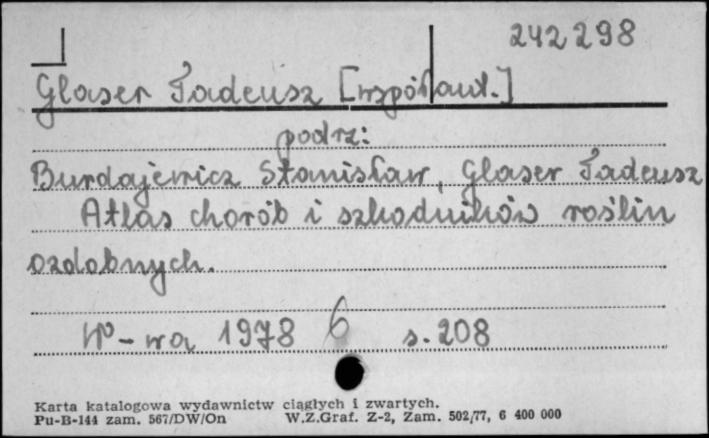 242298
Glaser Tadeusz [współaut.]
podrz:
Burdajewicz Stanisław, Glaser Tadeusz
Atlas chorób i szkodników roślin
ozdobnych.
W-wa 1978 6 s. 208
Karta katalogowa wydawnictw ciągłych i zwartych.
Pu-B-144 zam. 567/DW/On W.Z.Graf. Z-2, Zam. 502/77, 6 400 000